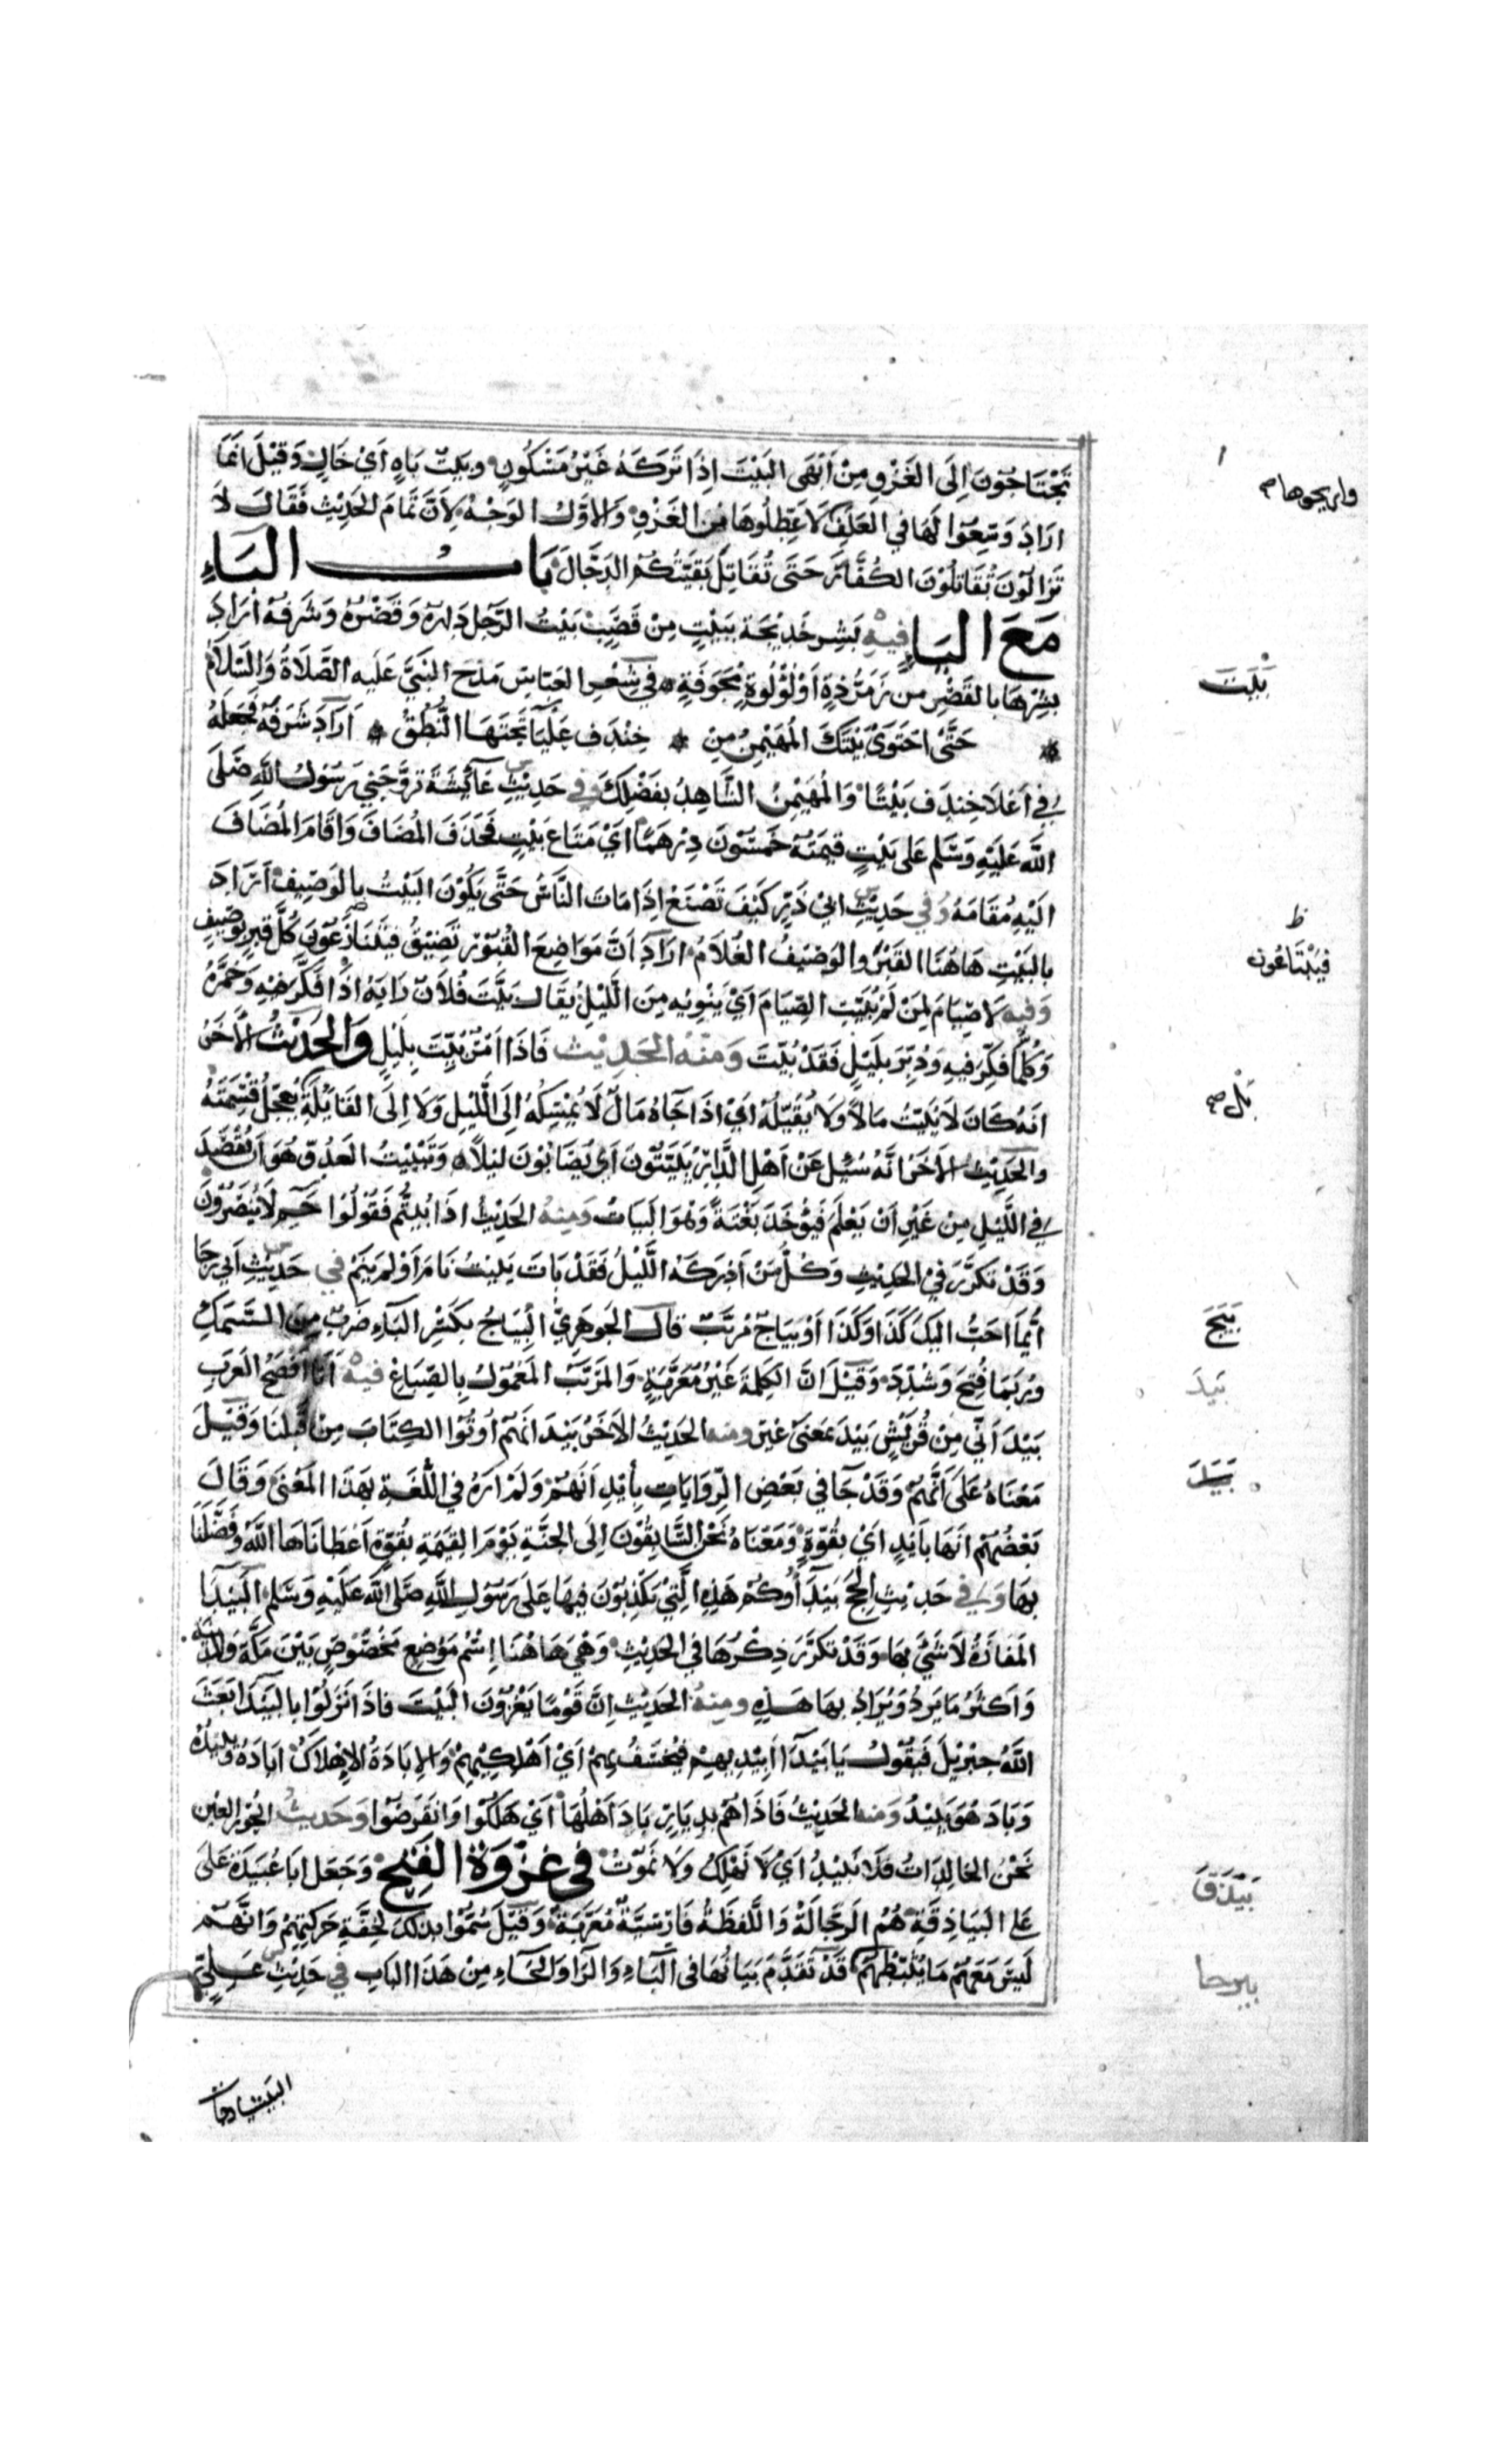 تحتاجون الى الغزو من ابهى البيت اذا تركه غير مسكون وبيت باه اي خال وقيل انما
اراد وسعوا لها في العلف لا عطلوها من الغزو والاول الوجه لان تمام الحديث فقال لا
تزالون تقاتلون الكفار حتى تقاتل بقيتكم الدجال باب الباء
مع الياء فيه بشر خديجة ببيت من قصب بيت الرجل داره وقصره وشرفه اراد
بشرها بالقصر من زمرذة او لؤلوة مجوفة في شعر العباس مدح النبي عليه الصلاة والسلام
حتى احتوى بيتك المهيمن من خندف علياء تحتها النطق اراد شرفه فجعله
في اعلا خندف بيتا والمهيمن الشاهد بفضلك وفي حديث عائشة تزوجني رسول الله صلى
الله عليه وسلم على بيت قيمته خمسون درهما اي متاع بيت فحذف المضاف واقام المضاف
اليه مقامه وفي حديث ابي ذر كيف تصنع اذا مات الناس حتى يكون البيت بالوصيف اراد
بالبيت هاهنا القبر والوصيف الغلام اراد ان مواضع القبور تضيق كل قبر بوصيف
وفيه لا صيام لمن لم يبيت الصيام اي ينويه من الليل يقال بيت فلان رايه اذا فكر فيه وخمره
وكلما فكر فيه ودبر بليل فقد بيت ومنه الحديث فاذا امر بيت بليل والحديث الاخر
انه كان لا يبيت مالا ولا يقيله اي اذا جاه مال لا يمسكه الى الليل ولا الى القايلة يعجل قسمته
والحديث الاخر انه سئل عن اهل الدار يبيتون اي يصابون ليلا وتبييت العدو هو ان يقصد
في الليل من غير ان يعلم فيوخذ بغتة وهو البيات ومنه الحديث اذا بيتم فقولوا حم لا ينصرون
وقد تكرر في الحديث وكل من ادركه الليل فقد بات يبيت نام او لم ينم في حديث ابي رجا
ايما احب اليك كذا وكذا او بياج مربب قال الجوهري البياج بكسر الباء ضرب من السمك
وربما فتح وشدد وقيل ان الكلمة غير معربة والمربب المعمول بالصباغ فيه انا افصح العرب
بيد اني من قريش بيد بمعنى غير ومنه الحديث الاخر بيد انهم اوتوا الكتاب من قبلنا وقيل
معناه على انهم وقد جا في بعض الروايات بايد انهم ولم اره في اللغة بهذا المعنى وقال
بعضهم انها بايد اي بقوة ومعناه نحن السابقون الى الجنة يوم القيمة بقوة اعطاناها الله وفضلنا
بها وفي حديث الحج بيدآوكم هذه التي تكذبون فيها على رسول الله صلى الله عليه وسلم البيدآ
المفازة لا شيء بها وقد تكرر ذكرها في الحديث وهي هاهنا اسم موضع مخصوص بين مكة والمدينة
واكثر ما يرد ويراد بها هذه ومنه الحديث ان قوما يغزون البيت فاذا نزلوا بالبيدآ بعث
الله جبريل فيقول يا بيدآ ابيديهم فيخسف بهم اي اهلكيهم والابادة الاهلاك اباده يبيده
وباد هو يبيد ومنه الحديث فاذا هم بديار باد اهلها اي هلكوا وانقرضوا وحديث الحور العين
نحن الخالدات فلا نبيد اي لا نهلك ولا نموت في غزوة الفتح وجعل ابا عبيدة على
على البياذقة هم الرجالة واللفظة فارسية معربة وقيل سموا بذلك لخفة حركتهم وانهم
ليس معهم ما يثقلهم قد تقدم بيانها في الباء والراء والحاء من هذا الباب في حديث علي
واريحوها صح
بيت
ظ
فيبتاعون
بل صح
بيج
بيد
بيد
بيذق
بيرحا
البيشارجات